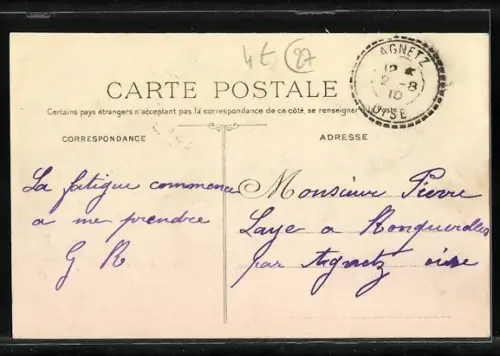 4t 27
AGNETZ
12
2 - 8
10
OISE
CARTE POSTALE
Certains pays étrangers n'acceptant pas la correspondance de ce côté, se renseigner
CORRESPONDANCE
ADRESSE
La fatigue commence
a me prendre
G R
Monsieur Pierre
Laye a Ronquerolles
par Agnetz oise